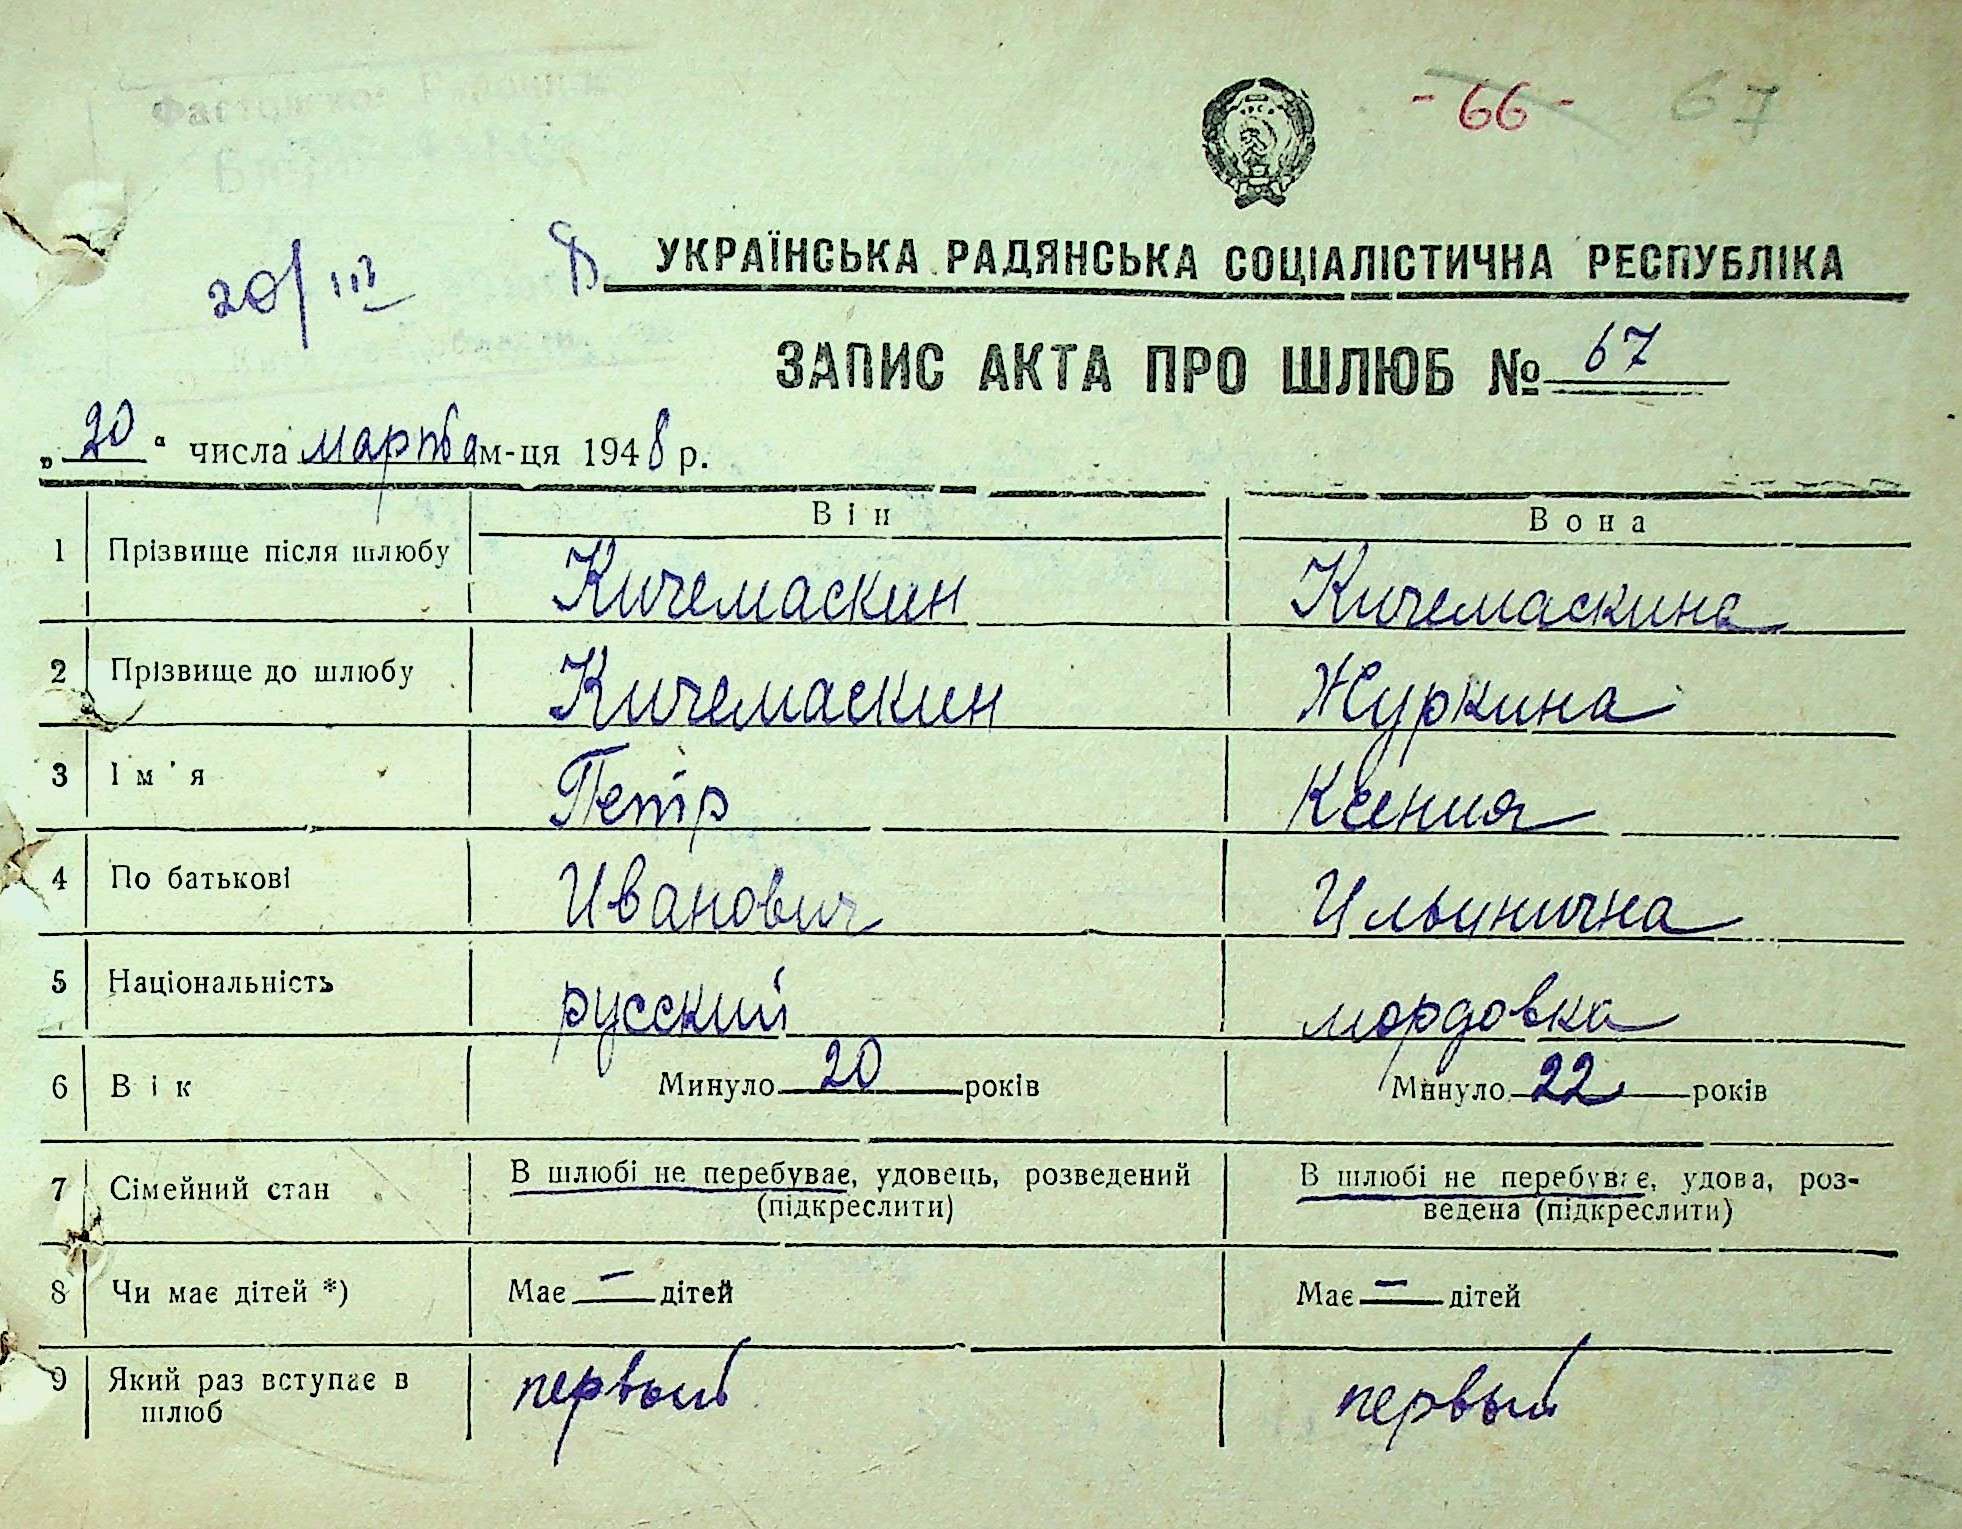 - 66 - 67
20/III
УКРАЇНСЬКА РАДЯНСЬКА СОЦІАЛІСТИЧНА РЕСПУБЛІКА
ЗАПИС АКТА ПРО ШЛЮБ № 67
„20“ числа марта м-ця 1948 р.
Він Вона
1 Прізвище після шлюбу Кичемаскин Кичемаскина
2 Прізвище до шлюбу Кичемаскин Журкина
3 Ім'я Петр Ксения
4 По батькові Иванович Ильинична
5 Національність русский мордовка
6 Вік Минуло 20 років Минуло 22 років
7 Сімейний стан В шлюбі не перебуває, удовець, розведений В шлюбі не перебуває, удова, роз-
(підкреслити) ведена (підкреслити)
8 Чи має дітей *) Має — дітей Має — дітей
9 Який раз вступає в первый первый
шлюб